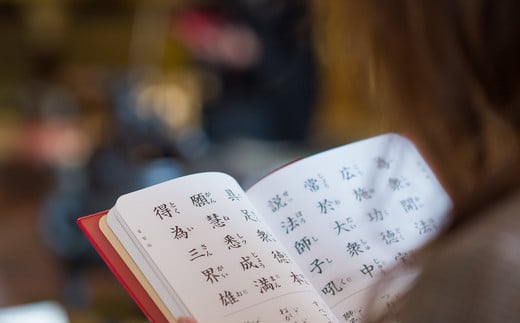 為衆開法
広施功徳
常於大衆中
説法師子吼
具足衆徳本
願慧悉成満
得為三界雄